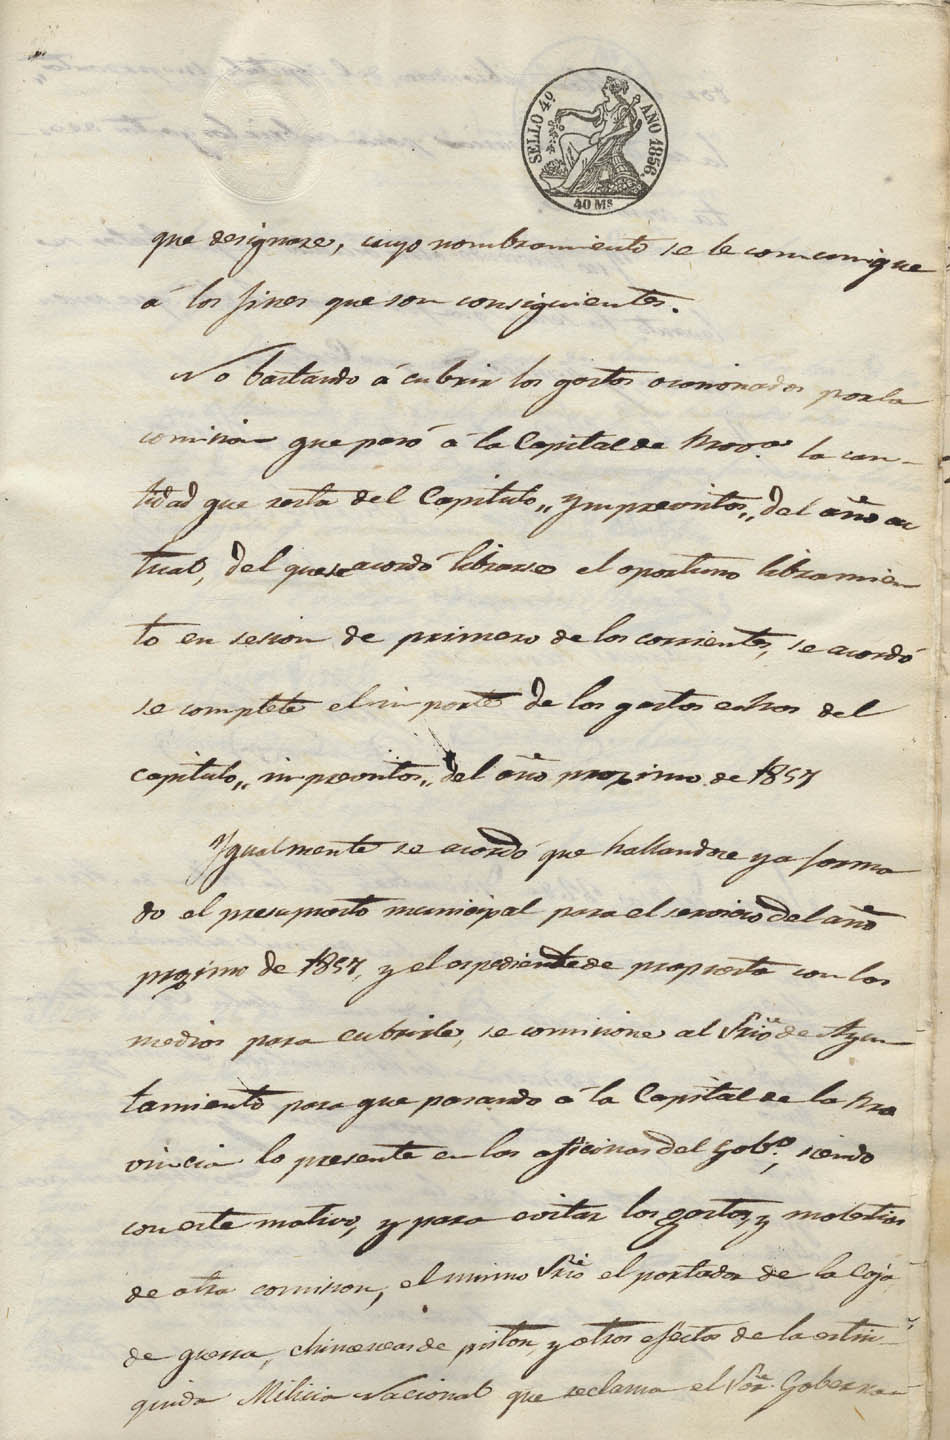 SELLO 4º AÑO 1856.
40 Ms
que designare, cuyo nombramiento se le comunique
á los fines que son consiguientes.
No bastando á cubrir los gastos ocasionados por la
comision que pasó á la Capital de Prov.ª la can-
tidad que resta del Capitulo „Ymprevistos„ del año ac
tual, del que se acordó librarse el oportuno libramien
to en sesion de primero de los corrientes, se acordó
se complete el importe de los gastos estos del
capitulo „imprevistos„ del año proximo de 1857
Ygualmente se acordó que hallandose ya forma
do el presupuesto municipal para el servicio del año
proximo de 1857, y el espediente de propuesta con los
medios para cubrirle, se comisione al Srio de Ayun
tamiento para que pasando á la Capital de la Pro
vincia lo presente en las oficinas del Gob.º, siendo
con este motivo, y para evitar los gastos y molestias
de otra comision, el mismo Srio el portador de la Caja
de guerra, chimeneas de piston, y otros efectos de la estin-
guida Milicia Nacional que reclama el Sor. Goberna-